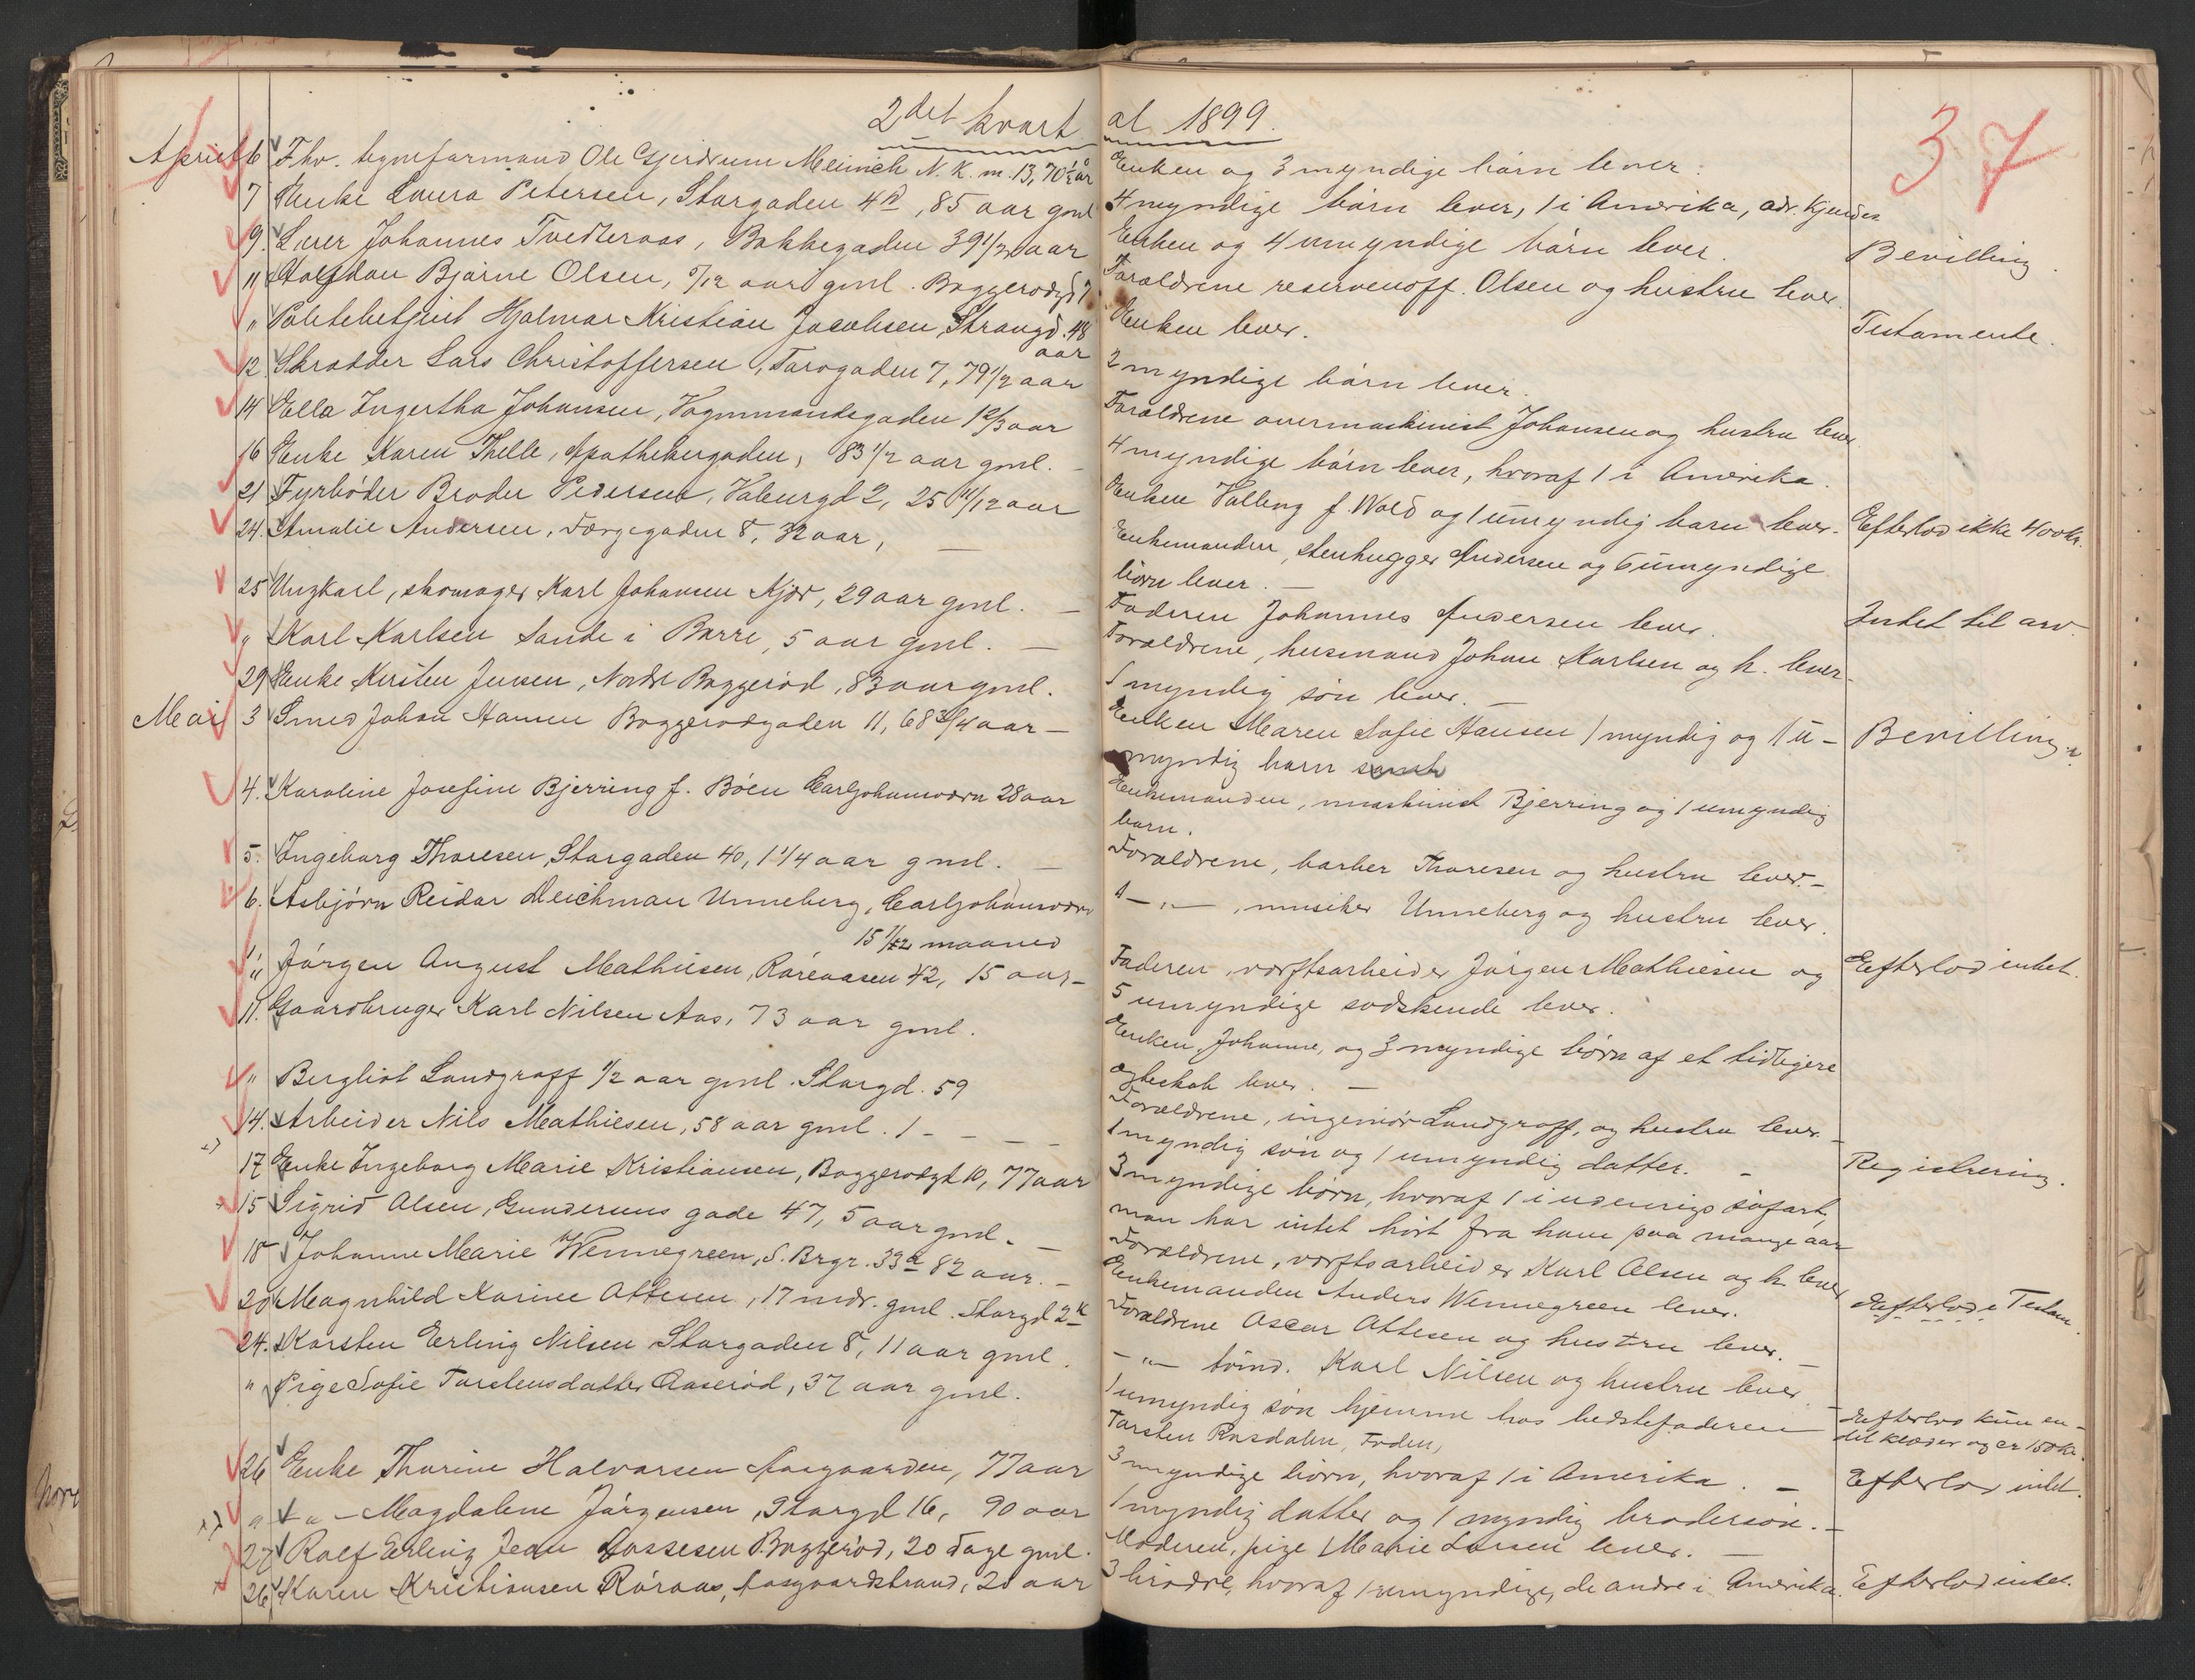 2det kvartal 1899.
37
April 6 Fhv. Ole Gjerdrum Meinich N. K. m. 13, 70 1/2 år
Enken og 3 myndige børn lever.
7 Enke Laura Petersen, Storgaden 4 , 85 aar gml
4 myndige børn lever, 1 i Amerika, adr. kjendes
9. Johannes Tvedteraas, Bakkegaden 39 1/2 aar
Enken og 4 umyndige børn lever.
Bevilling.
11 Halfdan Bjarne Olsen, 5/12 aar gml. Baggerødgd 7
Forældrene reservenoff. Olsen og hustru lever.
" Politibetjent Hjalmar Kristian Jacobsen, Strangd. 48
aar
Enken lever.
Testamente.
12 Skrædder Lars Christoffersen, Tarogaden 7, 79 1/2 aar
2 myndige børn lever.
14 Ella Ingertha Johansen, Vognmandsgaden 1 2/3 aar
Forældrene overmaskinist Johansen og hustru lever.
16 Enke Karen Thelle, Apothekergaden, 83 1/2 aar gml.
4 myndige børn lever, hvoraf 1 i Amerika.
21 Fyrbøder Broder Pedersen, 2, 25 11/12 aar
Enken Valborg f. Wold og 1 umyndig barn lever.
Efterlod ikke 400 kr.
24. Amalie Andersen, Færgegaden 8, 32 aar, —
Enkemanden, stenhugger Andersen og 6 umyndige
børn lever. —
25 Ungkarl, skomager Karl Johansen Kjær, 29 aar gml. —
Faderen Johannes Andersen lever.
Intet til arv.
" Karl Karlsen Sande i Borre, 5 aar gml. —
Forældrene, husmand Johan Karlsen og h. lever.
29 Enke Kirsten Jensen, Nordre Baggerød, 83 aar gml.
1 myndig søn lever. —
Mai 3 Smed Johan Hansen Baggerødgaden 11, 68 3/4 aar —
Enken Maren Sofie Hansen 1 myndig og 1 u-
myndig barn
Bevilling.
4. Karoline Josefine Bjerring f. Bøen Carljohansværn 28 aar
Enkemanden, maskinist Bjerring og 1 umyndig
barn.
5. Ingeborg Thoresen, Storgaden 40, 1 1/4 aar gml. —
Forældrene, barber Thoresen og hustru lever. —
6. Asbjørn Reidar Deichman Unneberg, Carljohansværn
15 1/2 maaned
— " — , musiker Unneberg og hustru lever.
" Jørgen August Mathisen, Røreaasen 42, 15 aar —
Faderen, værftsarbeider Jørgen Mathiesen og
5 umyndige sødskende lever.
Efterlod intet.
11. Gaardbruger Karl Nilsen Aas, 73 aar gml.
Enken, Johanne, og 3 myndige børn af et tidligere
ægteskab lever. —
" Bergliot Landgraff 1/2 aar gml. Storgd. 59
Forældrene, ingeniør Landgraff, og hustru lever. —
14. Arbeider Nils Mathiesen, 58 aar gml. 1 - - - -
1 myndig søn og 1 umyndig datter. —
Registrering.
17 Enke Ingeborg Marie Kristiansen, Baggerødgd 10, 77 aar
3 myndige børn, hvoraf 1 i udenrigs søfart,
man har intet hørt fra ham paa mange aar
15 Sigrid Olsen, Gundersens gade 47, 5 aar gml. —
Forældrene, værftsarbeider Karl Olsen og h. lever
18 Johanne Marie Wennegreen, S. Brgr. 33a 82 aar. —
Enkemanden Anders Wennegreen lever.
Efterlod Testam.
20 Magnhild Karine Ottesen, 17 mdr. gml. Storgd 2
Forældrene Oscar Ottesen og hustru lever. —
24. Karsten Erling Nilsen Storgaden 8, 11 aar gml.
— " — tømd. Karl Nilsen og hustru lever
" Pige Sofie Torstensdatter Aaserød, 37 aar gml.
1 umyndig søn hjemme hos bedstefaderen
Torsten
Efterlod kun en-
del klæder og ca 150 kr.
26 Enke Thorine Halvorsen Aasgaarden, 77 aar
3 myndige børn, hvoraf 1 i Amerika. —
Efterlod intet.
" — " — Magdalene Jørgensen, Storgd 16, 90 aar
1 myndig datter og 1 myndig brodersøn. —
27 Rolf Erling Jean Lassesen Baggerød, 20 dage gml.
Moderen, pige Marie Larsen lever. —
26 Karen Kristiansen Røraas, Aasgaardstrand, 20 aar
3 brødre, hvoraf 1 umyndige, de andre i Amerika.
Efterlod intet.